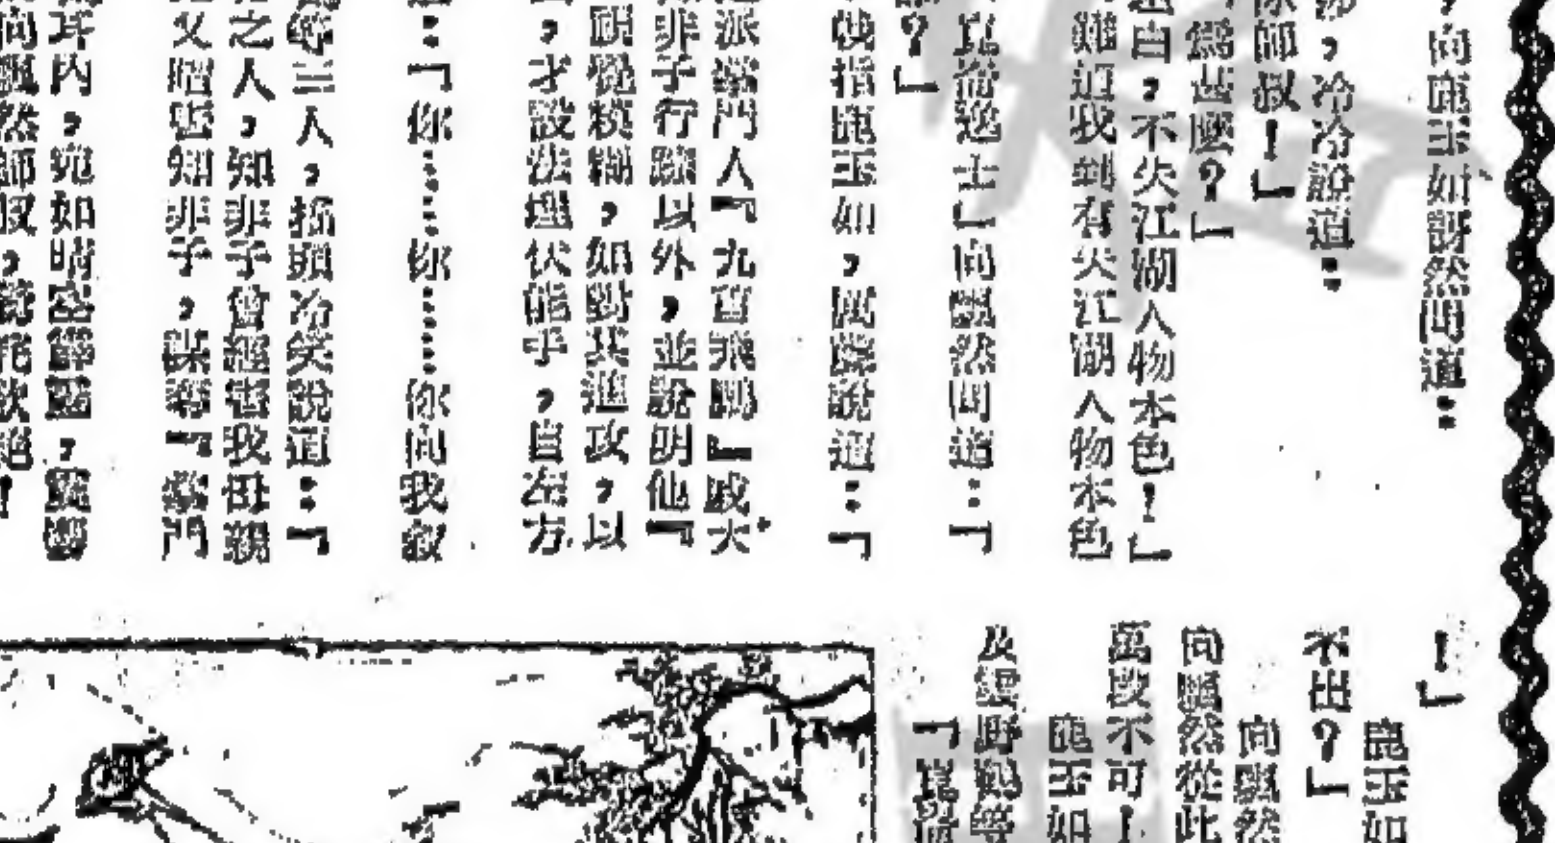 ，向龐玉如訝然問道：
，冷冷說道：
師叔！」
爲甚麼？」
白，不失江湖人物本色！」
難道我到有失江湖人物本色
逸士」向飄然問道：「
？」
指龐玉如，厲聲說道：「
派掌門人『九首飛鵬』戚大
非子行蹤以外，並說明他『
視覺模糊，如對其進攻，以
，才設法埋伏能手，自左方
：「你……你……你向我叙
等三人，搖頭冷笑說道：「
之人，知非子會經害我母親
又暗害知非子，謀奪『掌門
耳內，宛如晴空霹靂，震得
向飄然師叔，
！」
龐玉如
不出？」
向飄然
向飄然從此
萬段不可！
龐玉如
及雲野鶴等
「